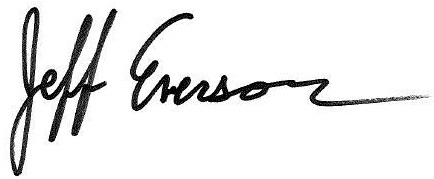 Jeff Everson